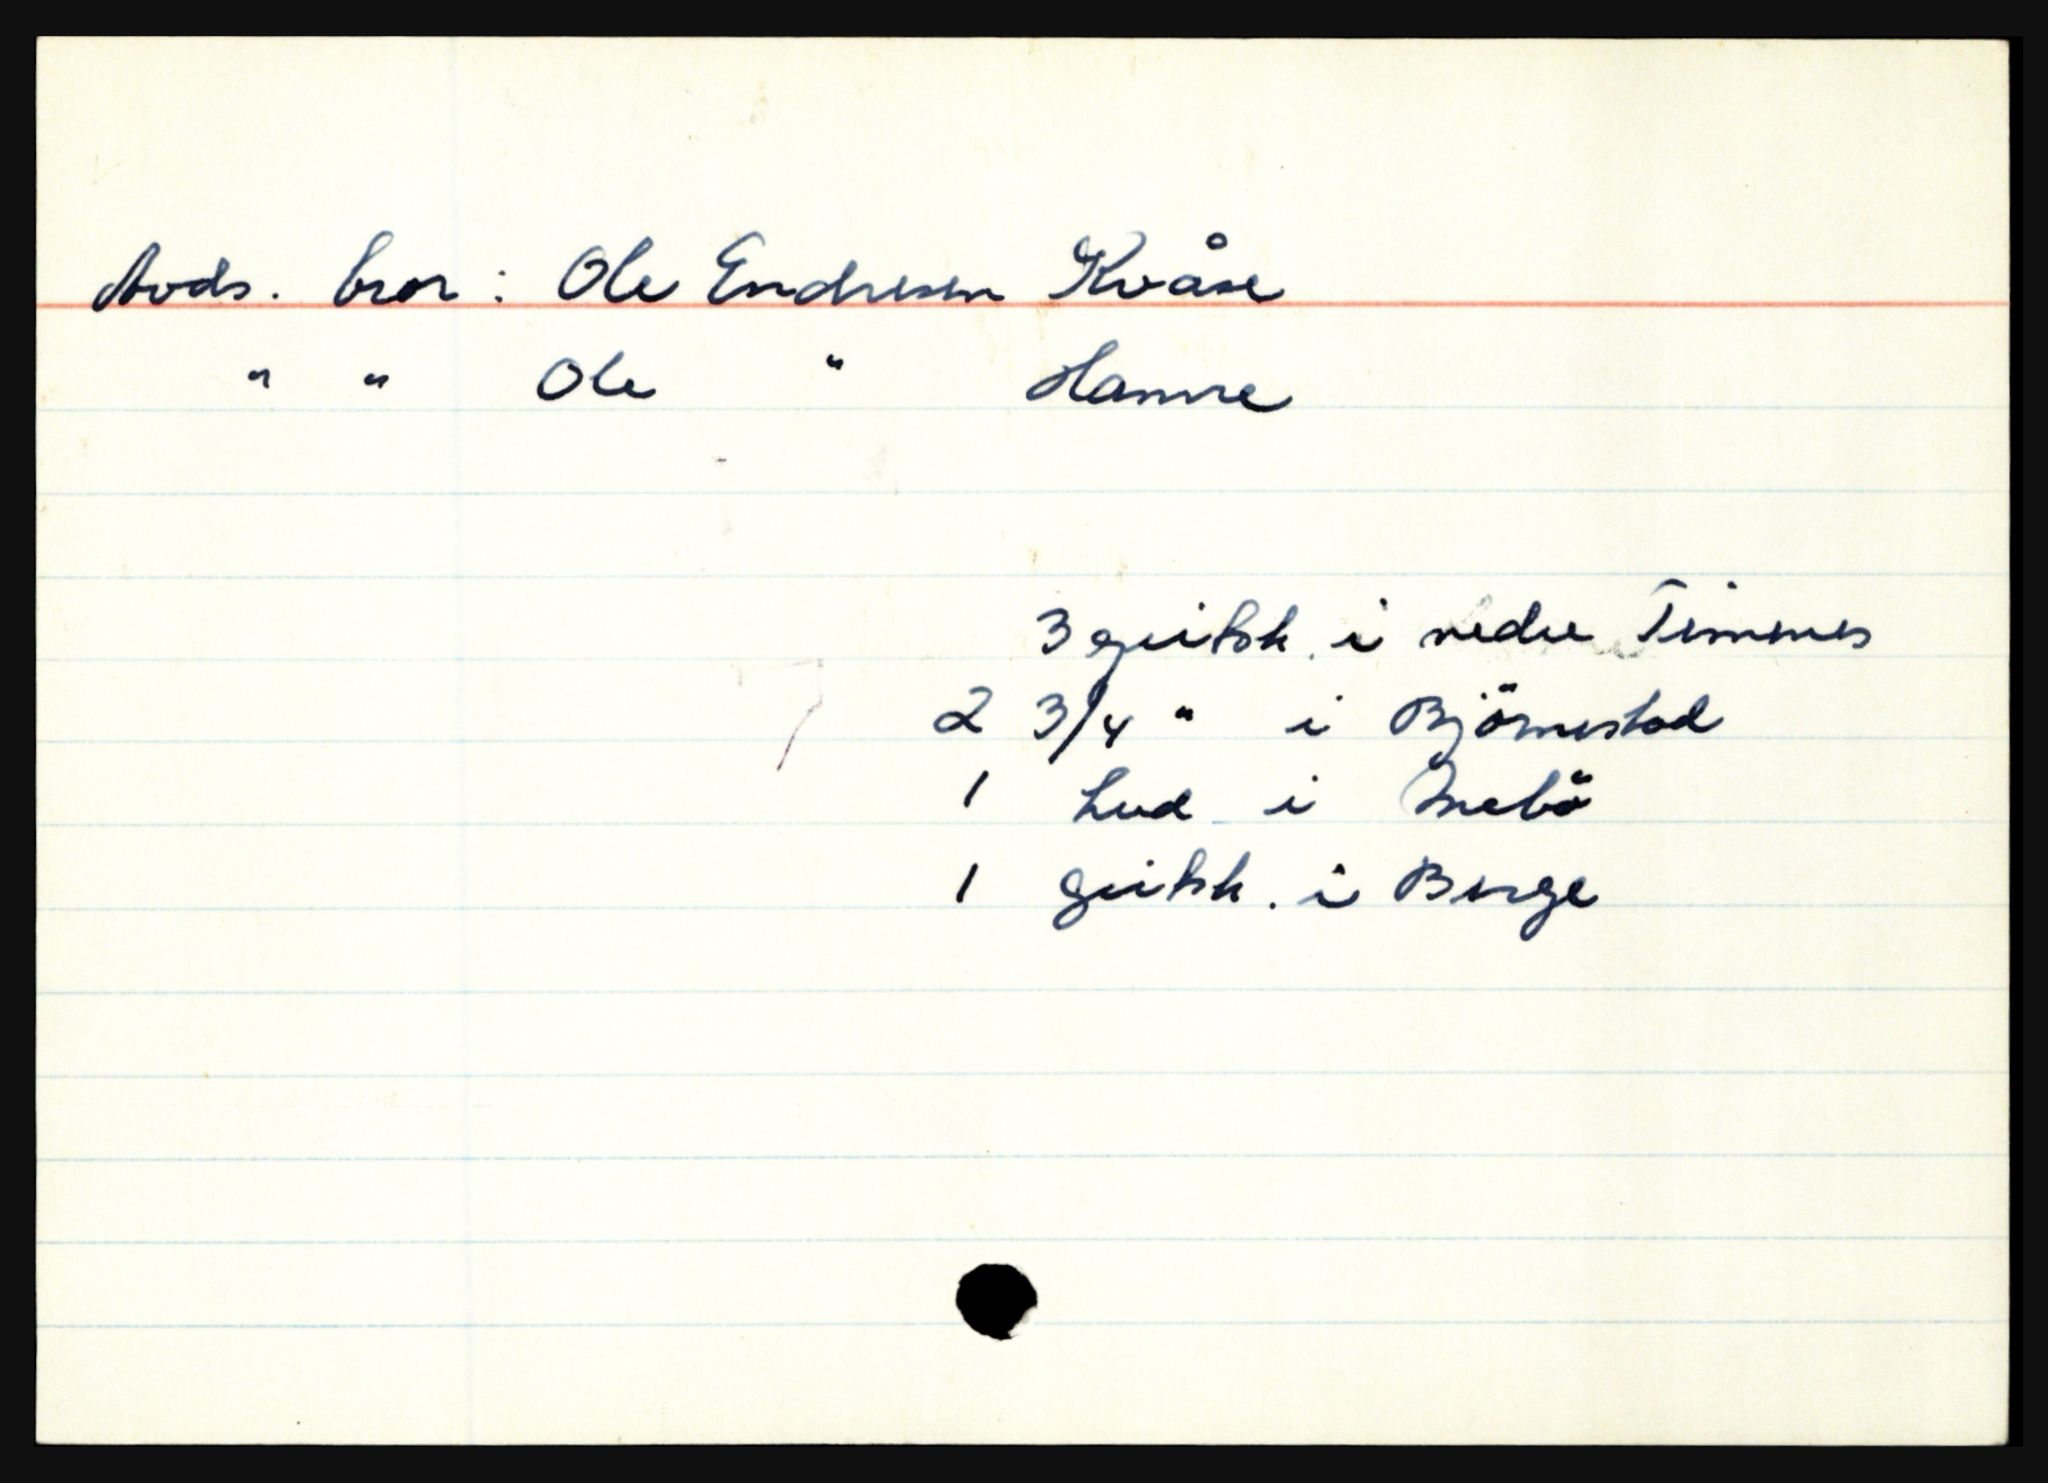 Avds. bror: Ole Endresen Kvåse
" " Ole " Hamre
3 geitsk. i nedre Timenes
2 3/4 " i Björnestad
1 hud i Mebö
1 geitsk. i Berge